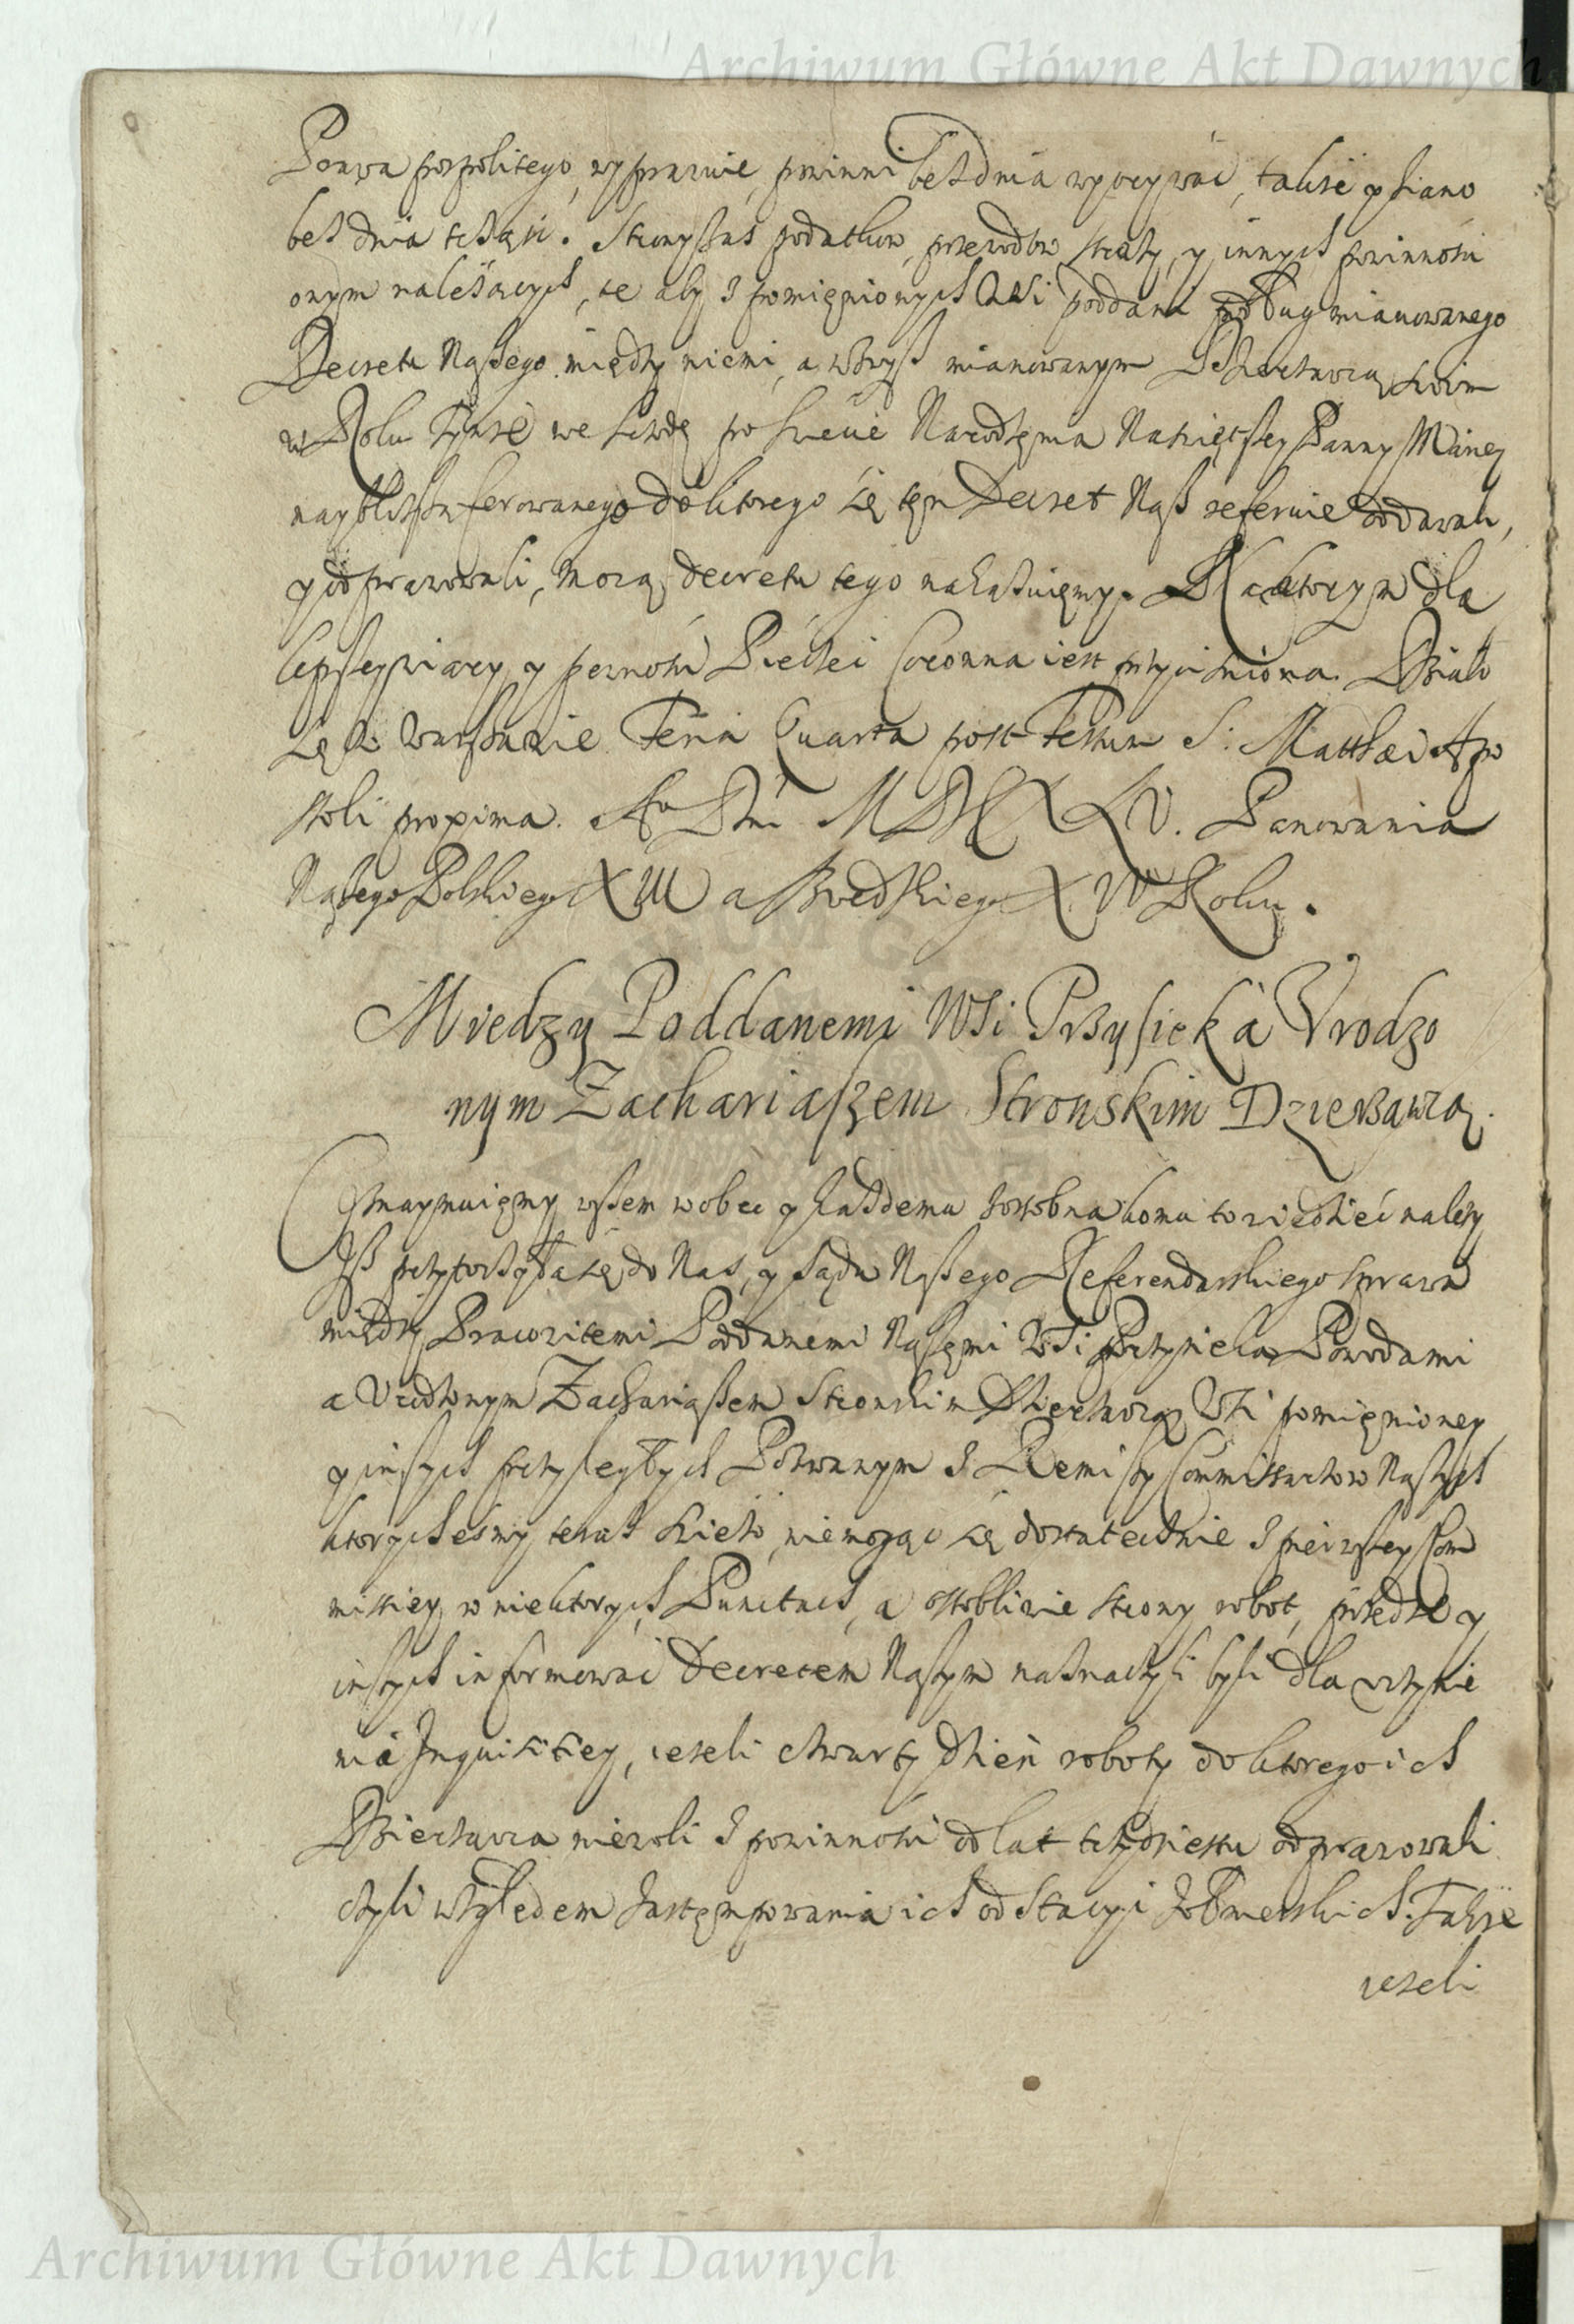 Archiwum Główne Akt Dawnych
Prawa pospolitego, wyprawie, powinni beż dnia wypocżywać, także y siano
beż dnia . Stronyßaś podatkow, przewodow, straży, y innych powinnośći
onym należących, te aby z pomięnionych Wśi poddani podług mianowanego
Decretu Naßego między niemi, a wtoryß mianowanym Dżierżawcą swoim
w Roku Tymże we srzodę po swięcie Narodzęnia Naświętßey Panny Mariey
naybliżßą ferowanego do ktorego się tęn Decret Naß referuie oddawali,
y odprawowali, mocą decretu tego nakażuięmy. Na ktorym dla
lepßey wiary, y pewnośći Piecżęć Coronna iest przyćiśniona. Dżiało
się w Warßawie Feria Quarta post Festum S. Matthæi Apo
stoli proxima. Ao Dni MDCXLV. Panowania
Naßego Polskiego XIII a Szwedżkiego XIV Roku.
Miedzy Poddanemi Wsi Przysieka Vrodzo
nym Zachariaszem Stronskim Dzierzawcą.
Oznaymuięmy wßem wobec y każdemu zosobna komu to wiedżieć należy
Iß przytocżyła się do Nas, y sądu Naßego Referendarskiego sprawa
między Pracowitemi Poddanemi Naßęmi Wśi Przysieka Powodami
a Vrodżonym Zachariaßem Stronskim Dżierżawcą Wśi pomięnioney
y inßych przyległych Pożwanym z Remissy Commissarżow Naßych
ktorycheśmy teraż , niemogąc się dostatecżnie z pierwßey Com
missiey w niektorych Punctach, a osobliwie strony robot, przędże y
inßych informować Decretem Naßym nażnacżyli byli dla vcżynie
nia Inquisitiey, ieżeli cżwarty dżień roboty do ktorego ich
Dżierżawca niewoli z powinnośći od lat trżydżiestu odprawowali
cżyli wżględem żastęmpowania ich od Stacyi żołnierskich. Także
ieżeli
Archiwum Główne Akt Dawnych